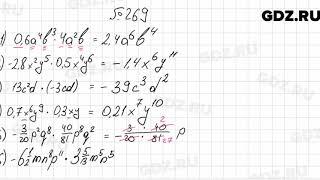 №269
GDZ.RU
) 0,6a⁴b³·4a²b = 2,4a⁶b⁴
) -2,8x²y⁵·0,5x⁴y⁶ = -1,4x⁶y¹¹
) 13c²d·(-3cd) = -39c³d²
) 0,7x⁶y⁹·0,3xy = 0,21x⁷y¹⁰
) -3/20 p²q⁸·40/81 p⁸q² = -3/20·40/81 p
) -6 1/2 mn⁸p¹¹·2 5/13 m⁵p⁵